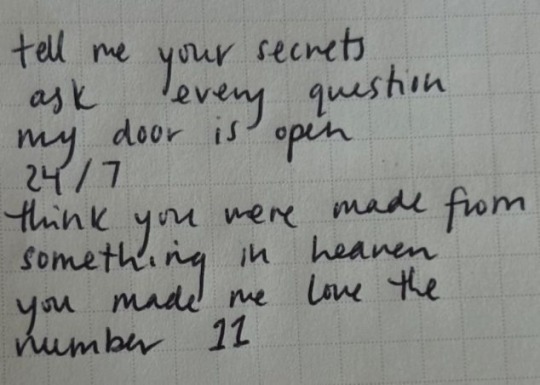 tell me your secrets
ask every question
my door is open
24/7
think you were made from
something in heaven
you made me love the
number 11